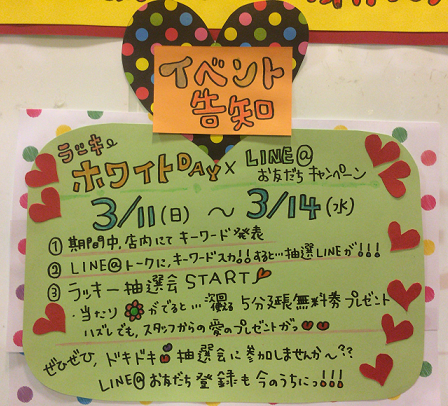 イベント
告知
ラッキー
ホワイトDAY× LINE@
お友だちキャンペーン
3/11(日) ～ 3/14(水)
① 期間中、店内にて キーワード発表
② LINE@トークに、キーワード入力!!すると…抽選LINEが!!!
③ ラッキー抽選会 START
・当たり がでると… 5分延長無料券プレゼント
ハズレでも、スタッフからの愛のプレゼントがっ
ぜひぜひ、ドキドキ 抽選会に参加しませんか〜??
LINE@お友だち登録も今のうちにっ!!!